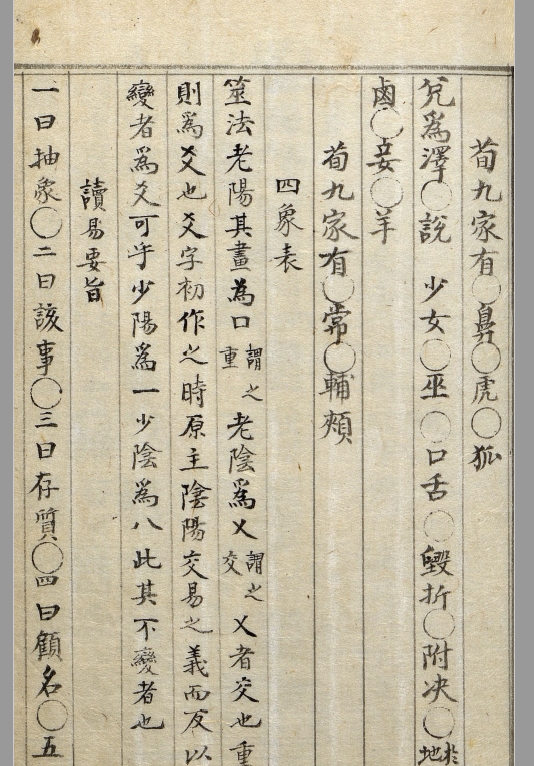 荀九家有○鼻○虎○狐
兌爲澤○說　少女○巫○口舌○毀折○附決○於地
鹵○妾○羊
荀九家有○常○輔頰
四象表
筮法老陽其畫爲口謂之重老陰爲乂謂之交乂者交也重
則爲爻也爻字初作之時原主陰陽交易之義而反以
變者爲爻可乎少陽爲一少陰爲八此其不變者也
讀易要旨
一曰抽象○二曰該事○三曰存質○四曰顧名○五